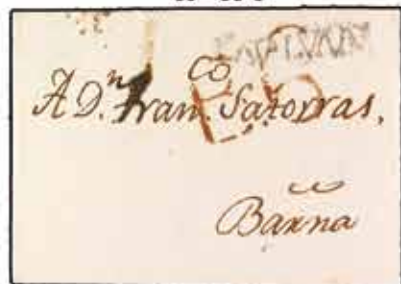 A D.n Fran.co Satorras,
Barna